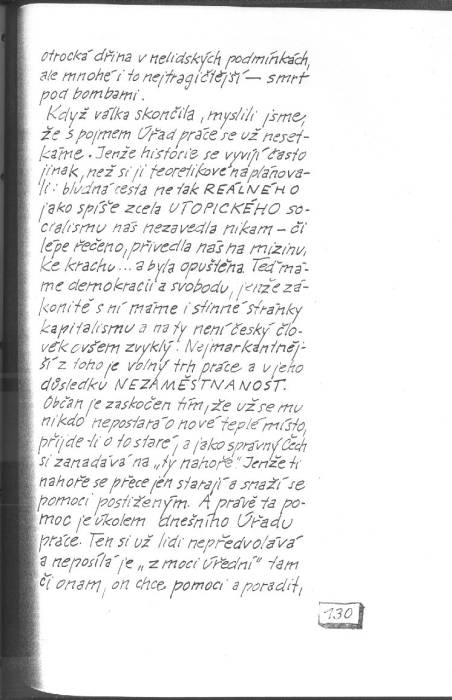 otrocká dřina v nelidských podmínkách,
ale mnohé i to nejtragičtější — smrt
pod bombami.
Když válka skončila, myslili jsme,
že s pojmem Úřad práce se už neset-
káme. Jenže historie se vyvíjí často
jinak, než si ji teoretikové naplánova-
li: bludná cesta ne tak REÁLNÉHO
jako spíše zcela UTOPICKÉHO so-
cialismu nás nezavedla nikam – či
lépe řečeno, přivedla nás na mizinu,
ke krachu... a byla opuštěna. Teď má-
me demokracii a svobodu, jenže zá-
konitě s ní máme i stinné stránky
kapitalismu a na ty není český člo-
věk ovšem zvyklý. Nejmarkantněj-
ší z toho je volný trh práce a v jeho
důsledku NEZAMĚSTNANOST.
Občan je zaskočen tím, že už se mu
nikdo nepostará o nové teplé místo,
přijde-li o to staré, a jako správný Čech
si zanadává na „ty nahoře". Jenže ti
nahoře se přece jen starají a snaží se
pomoci postiženým. A právě ta po-
moc je úkolem dnešního Úřadu
práce. Ten si už lidi nepředvolává
a neposílá je „z moci úřední" tam
či onam, on chce pomoci a poradit,
130